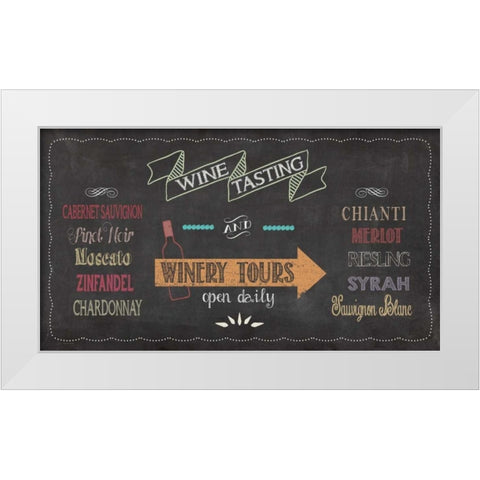 WINE TASTING
AND
WINERY TOURS
open daily
CABERNET SAUVIGNON
Pinot Noir
Moscato
ZINFANDEL
CHARDONNAY
CHIANTI
MERLOT
RIESLING
SYRAH
Sauvignon Blanc